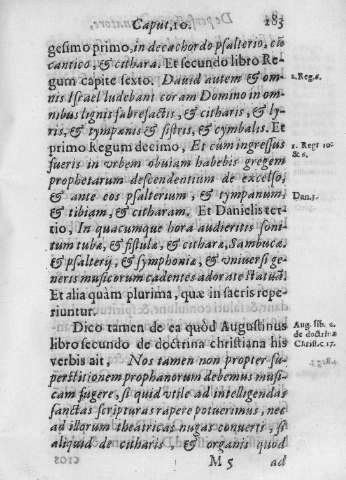 Caput, 10.
183
gesimo primo, in decachordo psalterio, cũ
cantico, & cithara. Et secundo libro Re-
gum capite sexto. Dauid autem & om-
2. Reg. 6.
nis Israel ludebant coram Domino in om-
nibus lignis fabrefactis, & citharis, & ly-
ris, & tympanis & sistris, & cymbalis. Et
primo Regum decimo, Et cum ingressus
1. Reg 10.
fueris in vrbem obuiam habebis gregem
& 6.
prophetarum descendentium de excelso,
& ante eos psalterium, & tympanum,
& tibiam, & citharam. Et Danielis ter-
Dan. 3.
tio, In quacumque hora audieritis soni-
tum tubæ, & fistulæ, & citharæ, Sambucæ,
& psalterij, & symphoniæ, & vniuersi ge-
neris musicorum cadentes adorate statuã.
Et alia quàm plurima, quæ in sacris repe-
riuntur.
Dico tamen de ea quòd Augustinus
Aug. lib. 2.
libro secundo de doctrina christiana his
de doctrinæ
verbis ait, Nos tamen non propter su-
Christ. c. 17.
perstitionem prophanorum debemus musi-
cam fugere, si quid vtile ad intelligendas
sanctas scripturas rapere potuerimus, nec
ad illorum theatricas nugas conuerti, si
aliquid de citharis, & organis quod
M 5
ad